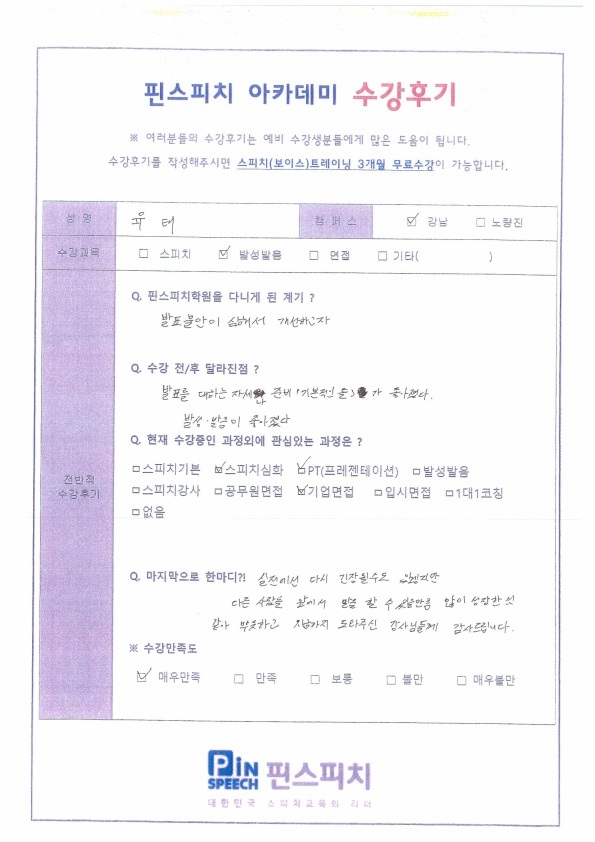 핀스피치 아카데미 수강후기
※ 여러분들의 수강후기는 예비 수강생분들에게 많은 도움이 됩니다.
수강후기를 작성해주시면 스피치(보이스)트레이닝 3개월 무료수강이 가능합니다.
성 명 유 태 캠 퍼 스 ☑ 강남 □ 노량진
수강과목 □ 스피치 ☑ 발성발음 □ 면접 □ 기타( )
Q. 핀스피치학원을 다니게 된 계기 ?
발표불안이 심해서 개선하고자
Q. 수강 전/후 달라진점 ?
발표를 대하는 자세와 준비(기본적인 틀)가 좋아졌다.
발성·발음이 좋아졌다
Q. 현재 수강중인 과정외에 관심있는 과정은 ?
전반적
수강후기
□스피치기본 ☑스피치심화 ☑PT(프레젠테이션) □발성발음
□스피치강사 □공무원면접 ☑기업면접 □입시면접 □1대1코칭
□없음
Q. 마지막으로 한마디?! 실전에선 다시 긴장될수도 있겠지만
다른 사람들 앞에서 말을 할 수 있을만큼 많이 성장한 것
같아 뿌듯하고 지금까지 도와주신 강사님들께 감사드립니다.
※ 수강만족도
☑ 매우만족 □ 만족 □ 보통 □ 불만 □ 매우불만
PiN
SPEECH 핀스피치
대한민국 스피치교육의 리더